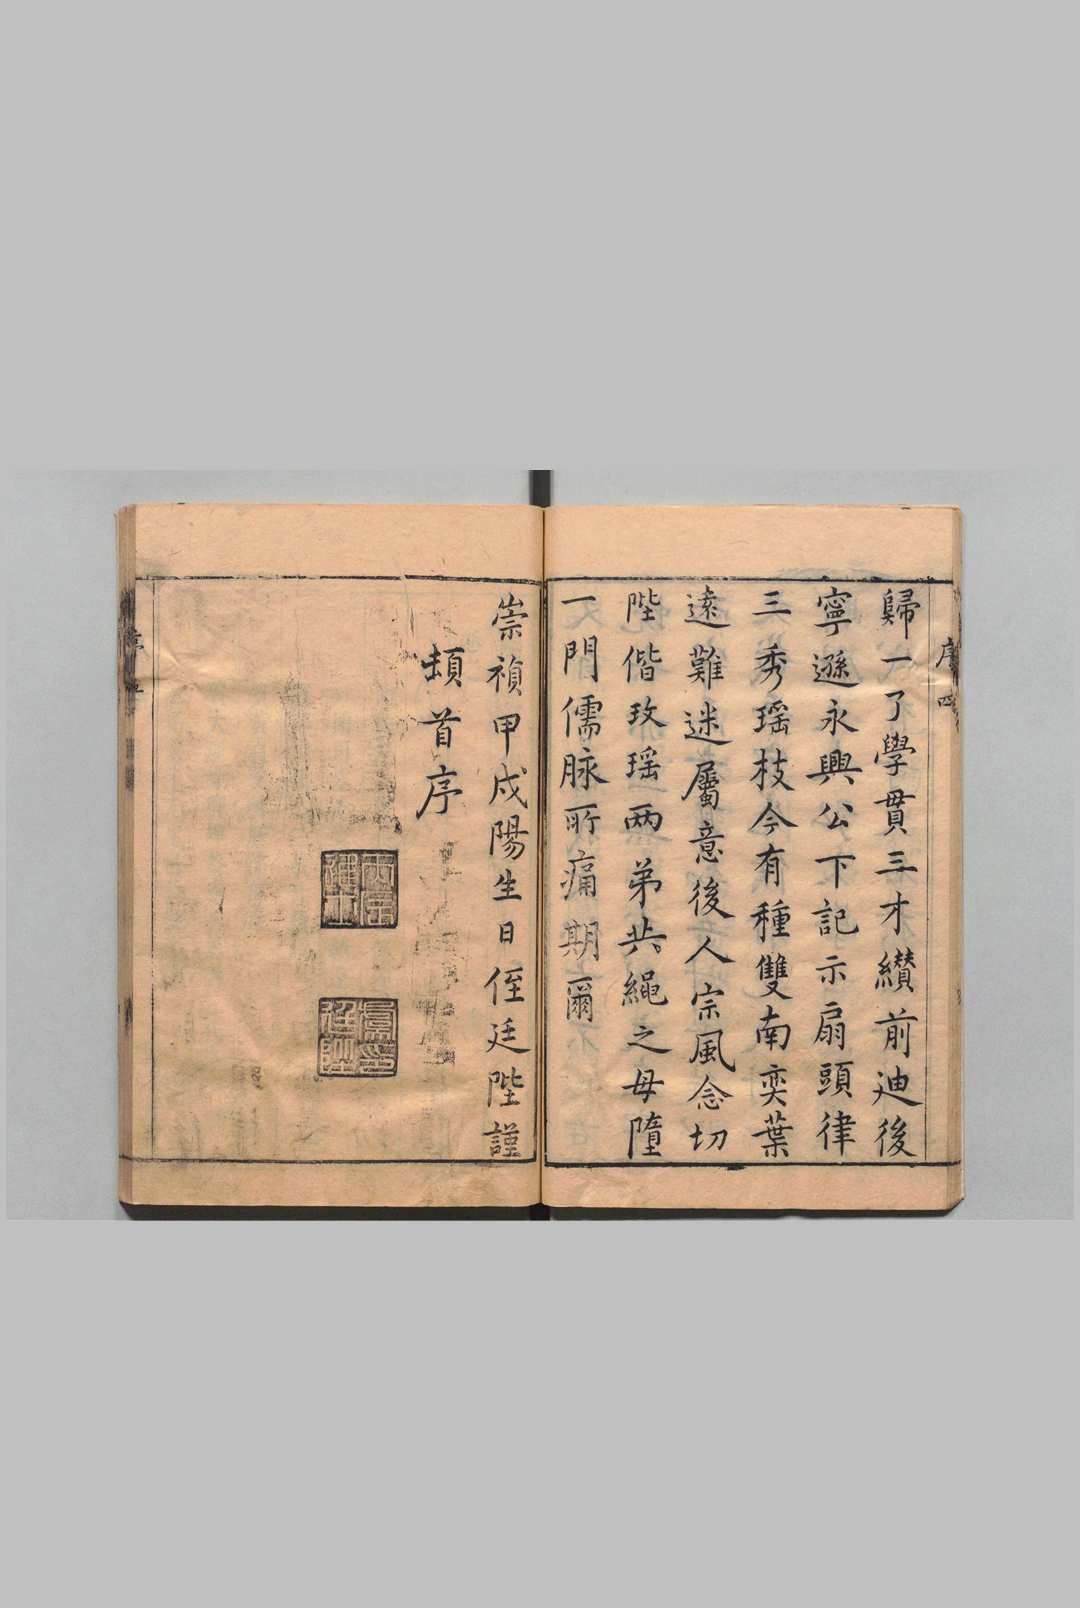 序 四
歸一了學貫三才纘前迪後
寧遜永興公下記示扇頭律
三秀瑶枝今有種雙南奕葉
遠難迷屬意後人宗風念切
陛偕玫瑶兩弟共繩之毋墮
一門儒脉所痛期爾
崇禎甲戌陽生日侄廷陛謹
頓首序